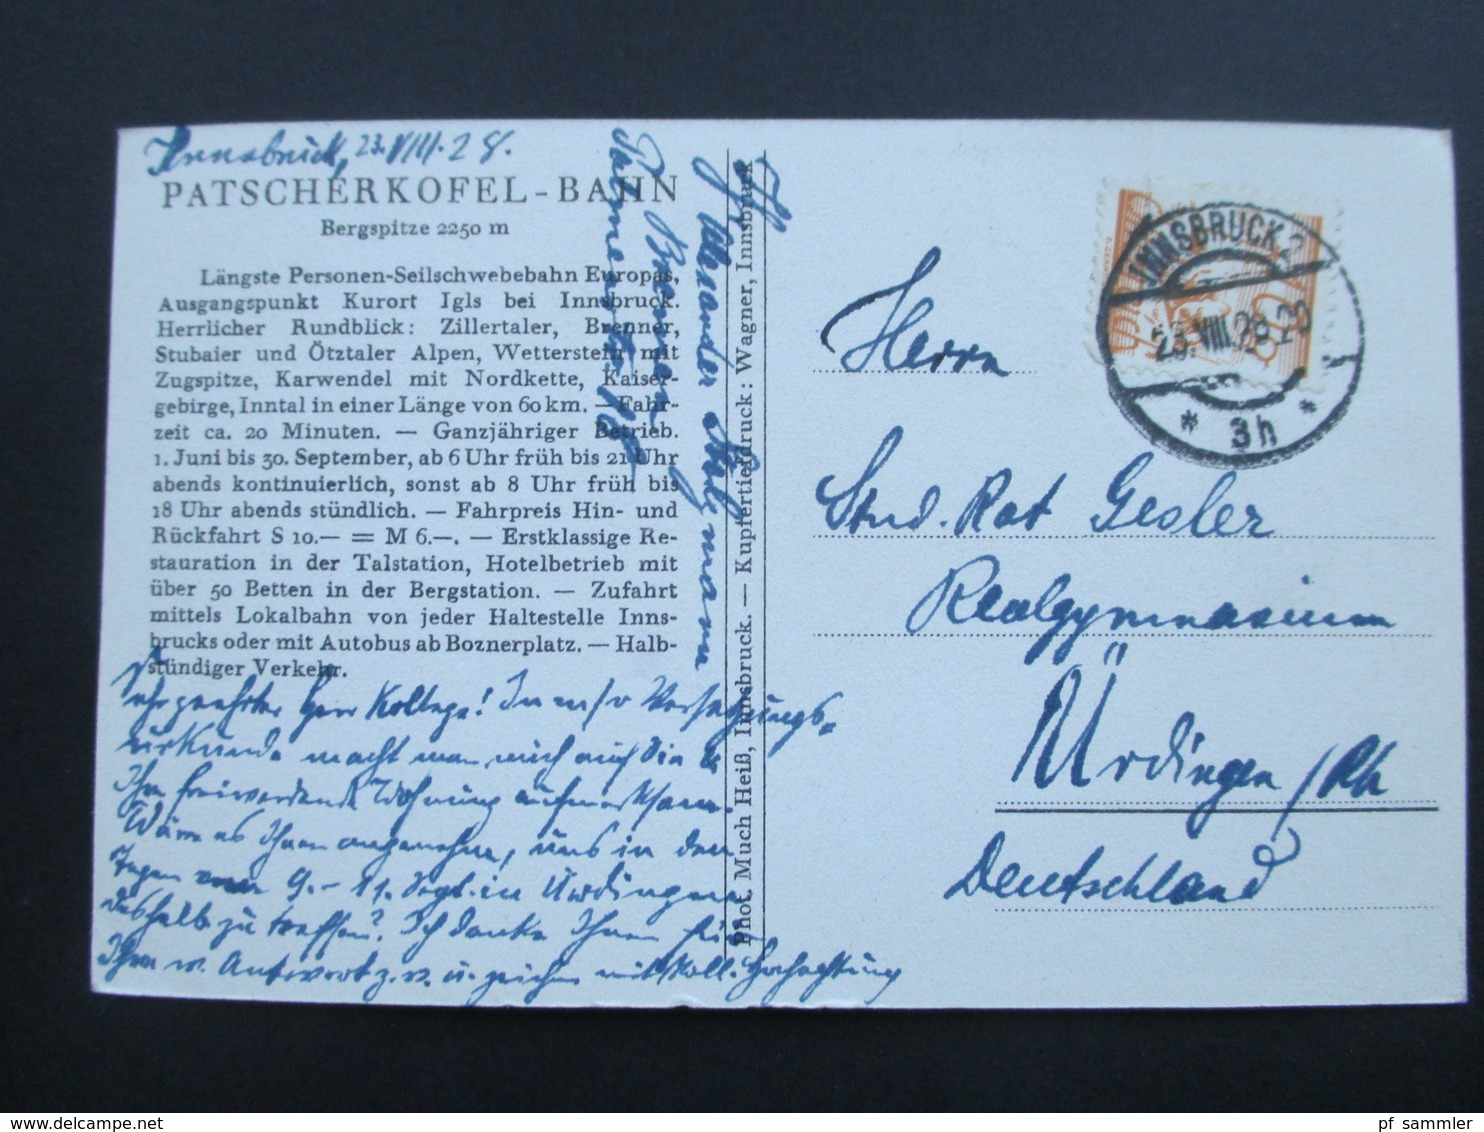 Innsbruck, 23.VIII.28.
PATSCHERKOFEL-BAHN
Bergspitze 2250 m
Längste Personen-Seilschwebebahn Europas,
Ausgangspunkt Kurort Igls bei Innsbruck.
Herrlicher Rundblick: Zillertaler, Brenner,
Stubaier und Ötztaler Alpen, Wetterstein mit
Zugspitze, Karwendel mit Nordkette, Kaiser-
gebirge, Inntal in einer Länge von 60 km. — Fahr-
zeit ca. 20 Minuten. — Ganzjähriger Betrieb.
1. Juni bis 30. September, ab 6 Uhr früh bis 21 Uhr
abends kontinuierlich, sonst ab 8 Uhr früh bis
18 Uhr abends stündlich. — Fahrpreis Hin- und
Rückfahrt S 10.— = M 6.—. — Erstklassige Re-
stauration in der Talstation, Hotelbetrieb mit
über 50 Betten in der Bergstation. — Zufahrt
mittels Lokalbahn von jeder Haltestelle Inns-
brucks oder mit Autobus ab Boznerplatz. — Halb-
stündiger Verkehr.
Sehr geehrter Herr Kollege! In m/r Versetzungs-
urkunde macht man mich auf die
Ihr freiwerdende Wohnung aufmerksam.
Wäre es Ihnen angenehm, uns in den
Tagen vom 9.-11. Sept. in Ürdingen
deshalb zu treffen? Ich danke Ihnen für
Ihre w. Antwort z. v. u. zeichne mit koll. Hochachtung
Bremen
Phot. Much Heiß, Innsbruck. — Kupfertiefdruck: Wagner, Innsbruck
INNSBRUCK 2
23.VIII.28.20
* 3h *
Herrn
Stud. Rat Gesler
Realgymnasium
Ürdingen/Rh
Deutschland
pf sammler
www.delcampe.net